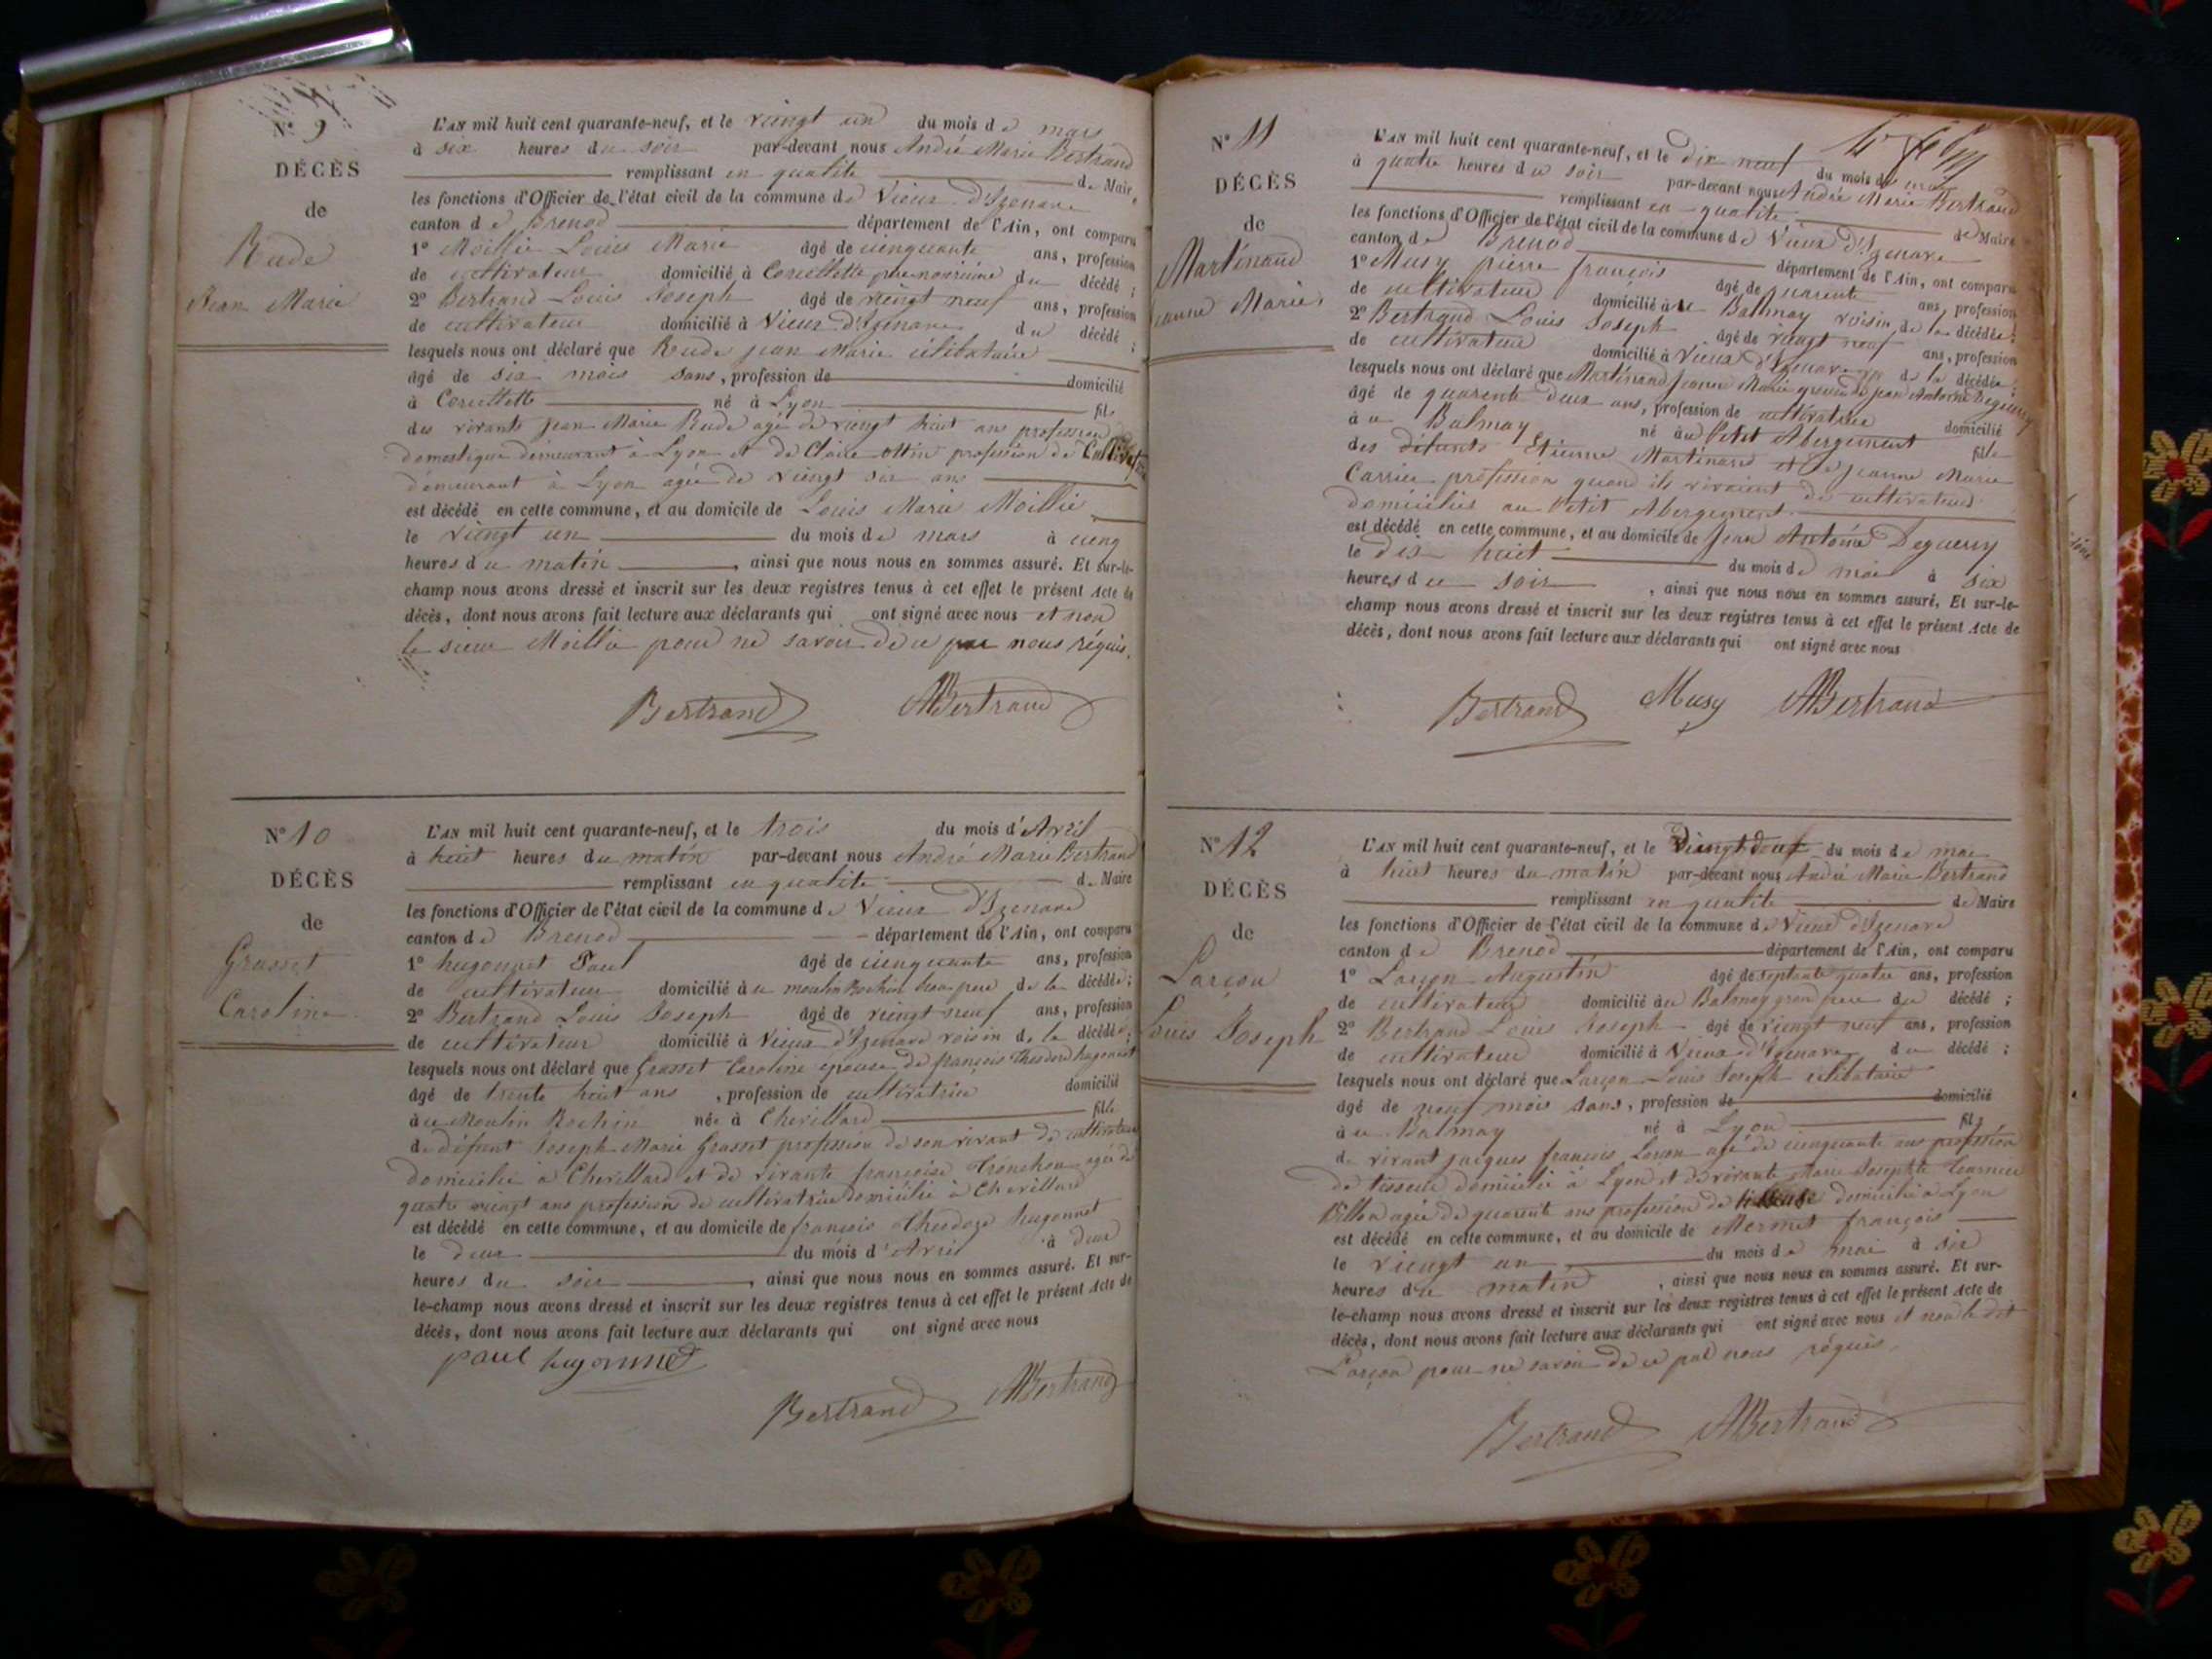 Nº 9
DÉCÈS
de
Rude
Jean Marie
L'AN mil huit cent quarante-neuf, et le vingt un du mois de mars
à six heures du soir par-devant nous André Marie Bertrand
remplissant en qualité de Maire
les fonctions d'Officier de l'état civil de la commune de Vieux d'Izenave
canton de Brenod département de l'Ain, ont comparu
1º Moillie Louis Marie âgé de cinquante ans, profession
de cultivateur domicilié à Corcellette père nourricine du décédé ;
2º Bertrand Louis Joseph âgé de vingt neuf ans, profession
de cultivateur domicilié à Vieux d'Izenave du décédé ;
lesquels nous ont déclaré que Rude jean Marie célibataire
âgé de six mois sans, profession de domicilié
à Corcellette né à Lyon fils
des vivants jean Marie Rude agé de vingt huit ans profession de
domestique demeurant à Lyon et de Claire ottin profession de
demeurant à Lyon agée de vingt six ans
est décédé en cette commune, et au domicile de Louis Marie Moillie
le vingt un du mois de mars à cinq
heures du matin, ainsi que nous nous en sommes assuré. Et sur-le-
champ nous avons dressé et inscrit sur les deux registres tenus à cet effet le présent Acte de
décès, dont nous avons fait lecture aux déclarants qui ont signé avec nous et non
le sieur Moillie pour ne savoir de ce par nous réquis.
Bertrand AMBertrand
Nº 10
DÉCÈS
de
Grasset
Caroline
L'AN mil huit cent quarante-neuf, et le trois du mois d'Avril
à huit heures du matin par-devant nous André Marie Bertrand
remplissant en qualité de Maire
les fonctions d'Officier de l'état civil de la commune de Vieux d'Izenave
canton de Brenod département de l'Ain, ont comparu
1º hugonnet Paul âgé de cinquante ans, profession
de cultivateur domicilié au moulin Rochin beau pere de la décédée ;
2º Bertrand Louis Joseph âgé de vingt neuf ans, profession
de cultivateur domicilié à Vieux d'Izenave voisin de la décédée ;
lesquels nous ont déclaré que Grasset Caroline épouse de françois Theodore hugonnet
âgé de trente huit ans, profession de cultivatrice domicilié
au Moulin Rochin née à Chevillard fille
de défunt Joseph Marie Grasset profession de son vivant de cultivateur
domicilié à Chevillard et de vivante françoise Trénchon agée de
quatre vingt ans profession de cultivatrice domiciliée à Chevillard
est décédé en cette commune, et au domicile de françois Theodore hugonnet
le deux du mois d'Avril à deux
heures du soir, ainsi que nous nous en sommes assuré. Et sur-
le-champ nous avons dressé et inscrit sur les deux registres tenus à cet effet le présent Acte de
décès, dont nous avons fait lecture aux déclarants qui ont signé avec nous
paul hugonnet
Bertrand AMBertrand
Nº 11
DÉCÈS
de
Martinand
Jeanne Marie
L'AN mil huit cent quarante-neuf, et le dix neuf du mois de mai
à quatre heures du soir par-devant nous André Marie Bertrand
remplissant en qualité de Maire
les fonctions d'Officier de l'état civil de la commune de Vieux d'Izenave
canton de Brenod département de l'Ain, ont comparu
1º Musy pierre françois âgé de quarente ans, profession
de cultivateur domicilié à le Balmay voisin de la décédée ;
2º Bertrand Louis Joseph âgé de vingt neuf ans, profession
de cultivateur domicilié à Vieux d'Izenave de la décédée ;
lesquels nous ont déclaré que Martinand jeanne Marie jean Antoine Deguerry
âgé de quarente deux ans, profession de cultivatrice domicilié
à u Balmay né au Petit Abergement fille
des défunts Etienne Martinand et de jeanne Marie
Carrier profession quand ils vivaient de cultivateurs
domiciliés au Petit Abergement
est décédé en cette commune, et au domicile de Jean Antoine Deguerry
le dix huit du mois de mai à six
heures du soir, ainsi que nous nous en sommes assuré. Et sur-le-
champ nous avons dressé et inscrit sur les deux registres tenus à cet effet le présent Acte de
décès, dont nous avons fait lecture aux déclarants qui ont signé avec nous
Bertrand Musy AMBertrand
Nº 12
DÉCÈS
de
Larçon
Louis Joseph
L'AN mil huit cent quarante-neuf, et le du mois de mai
à huit heures du matin par-devant nous André Marie Bertrand
remplissant en qualité de Maire
les fonctions d'Officier de l'état civil de la commune de Vieux d'Izenave
canton de Brenod département de l'Ain, ont comparu
1º Larçon Augustin âgé de septante quatre ans, profession
de cultivateur domicilié au Balmay grand pere du décédé ;
2º Bertrand Louis Joseph âgé de vingt neuf ans, profession
de cultivateur domicilié à Vieux d'Izenave du décédé ;
lesquels nous ont déclaré que Larçon Louis Joseph célibataire
âgé de neuf mois sans, profession de domicilié
à u Balmay né à Lyon fils
de vivant jacques françois Larçon agé de cinquante ans profession
de tisseur domicilié à Lyon et de vivante Marie Josephte
agée de quarente ans profession de domicilié à Lyon
est décédé en cette commune, et au domicile de Mermet françois
le vingt un du mois de mai à six
heures du matin, ainsi que nous nous en sommes assuré. Et sur-
le-champ nous avons dressé et inscrit sur les deux registres tenus à cet effet le présent Acte de
décès, dont nous avons fait lecture aux déclarants qui ont signé avec nous et non le dit
Larçon pour ne savoir de ce par nous réquis.
Bertrand AMBertrand